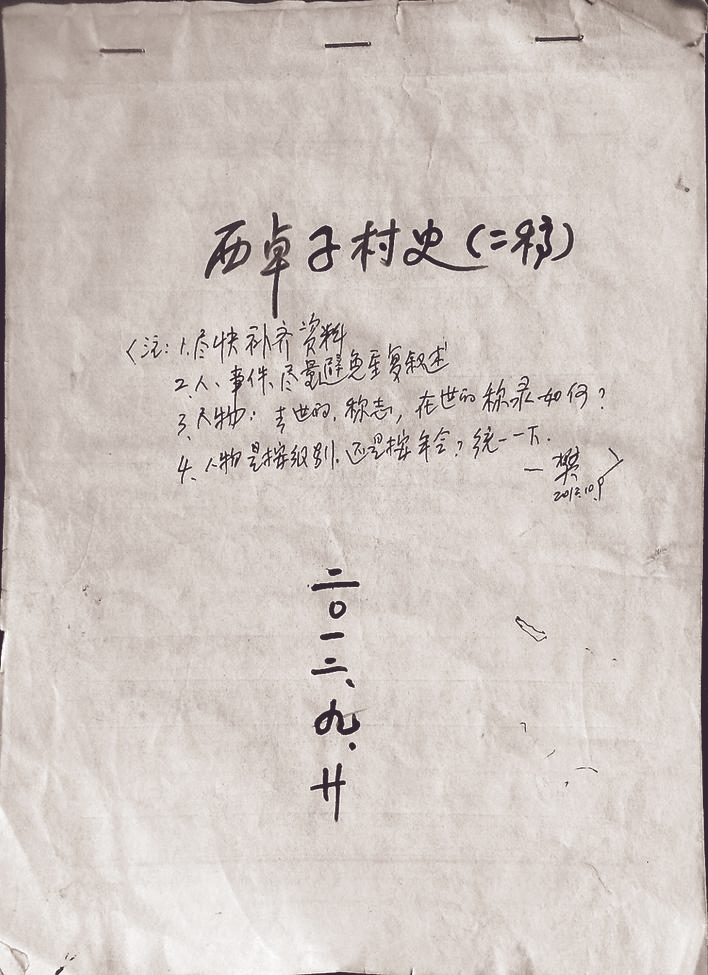 西卓子村史(二稿)
〈注:1.尽快补齐资料
2、人、事件、尽量避免重复叙述
3、人物:去世的,称志,在世的称录如何?
4、人物是按级别,还是按年令?统一一下.
—樊〉
2013.10.9
二〇一三、九、廿